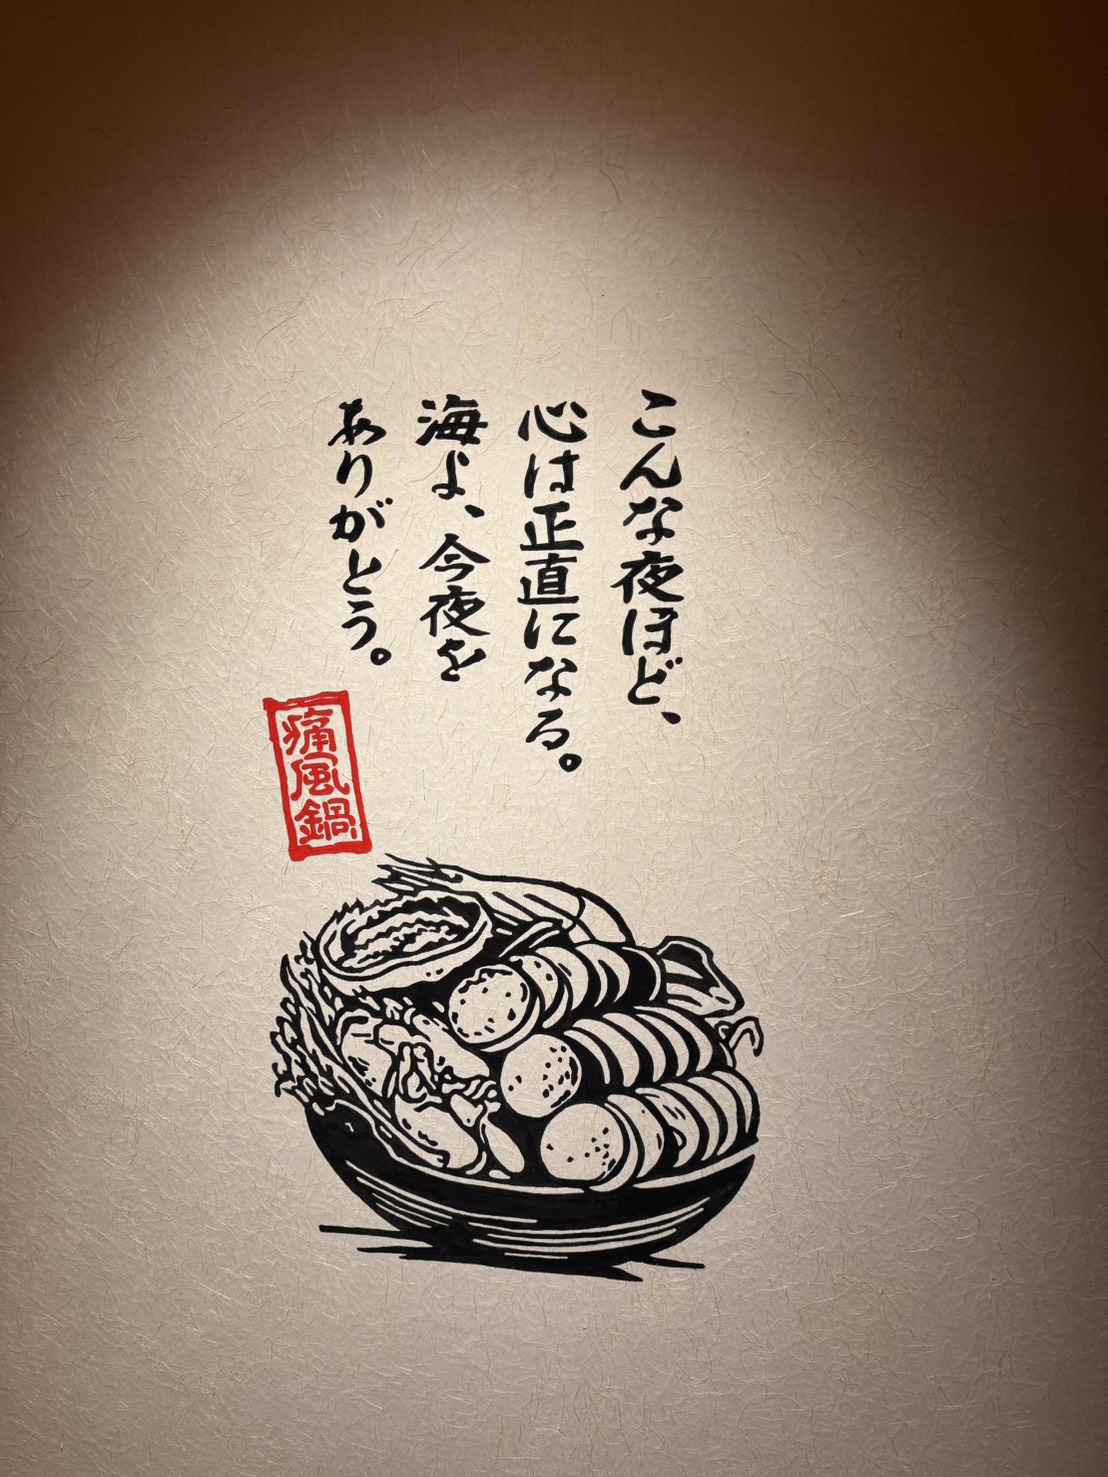 こんな夜ほど、
心は正直になる。
海よ、今夜を
ありがとう。
痛風鍋